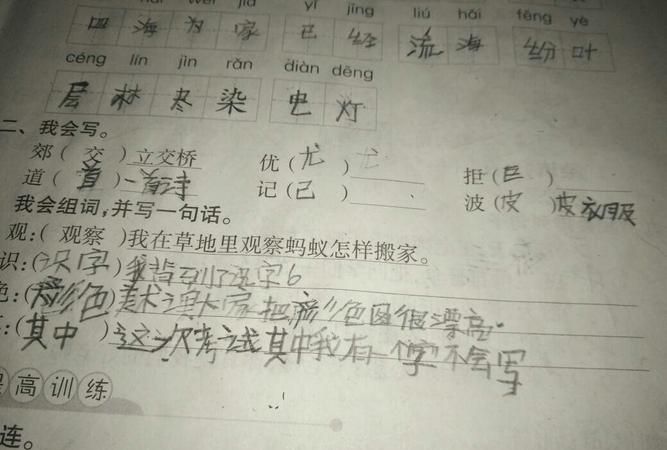 wéi jiā yǐ jīng liú hǎi fēng yè
四 海 为 家 已 经 流 海 纷 叶
céng lín jìn rǎn diàn dēng
层 林 尽 染 电 灯
二、我会写。
郊( 交 )立交桥 优( 尤 ) 拒( 巨 )
道( 首 )一首诗 记( 己 ) 波( 皮 )皮衣服
我会组词,并写一句话。
观:( 观察 )我在草地里观察蚂蚁怎样搬家。
识:(识字)我 了识字6
色:(彩色)美术课大家把彩色图很漂亮.
:(其中)这次考试其中我有一个字不会写
高训练
连。